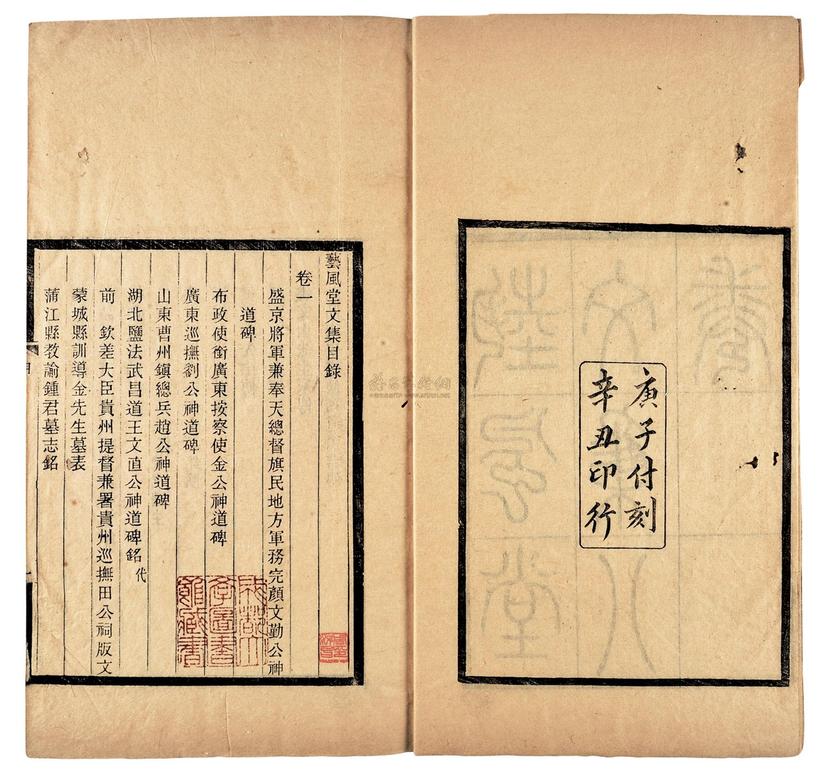 庚子付刻
辛丑印行
藝風堂文集目錄
卷一
盛京將軍兼奉天總督旗民地方軍務完顏文勤公神
道碑
布政使銜廣東按察使金公神道碑
廣東巡撫劉公神道碑
山東曹州鎮總兵趙公神道碑
湖北鹽法武昌道王文直公神道碑銘代
前 欽差大臣貴州提督兼署貴州巡撫田公祠版文
蒙城縣訓導金先生墓表
蒲江縣教諭鍾君墓志銘